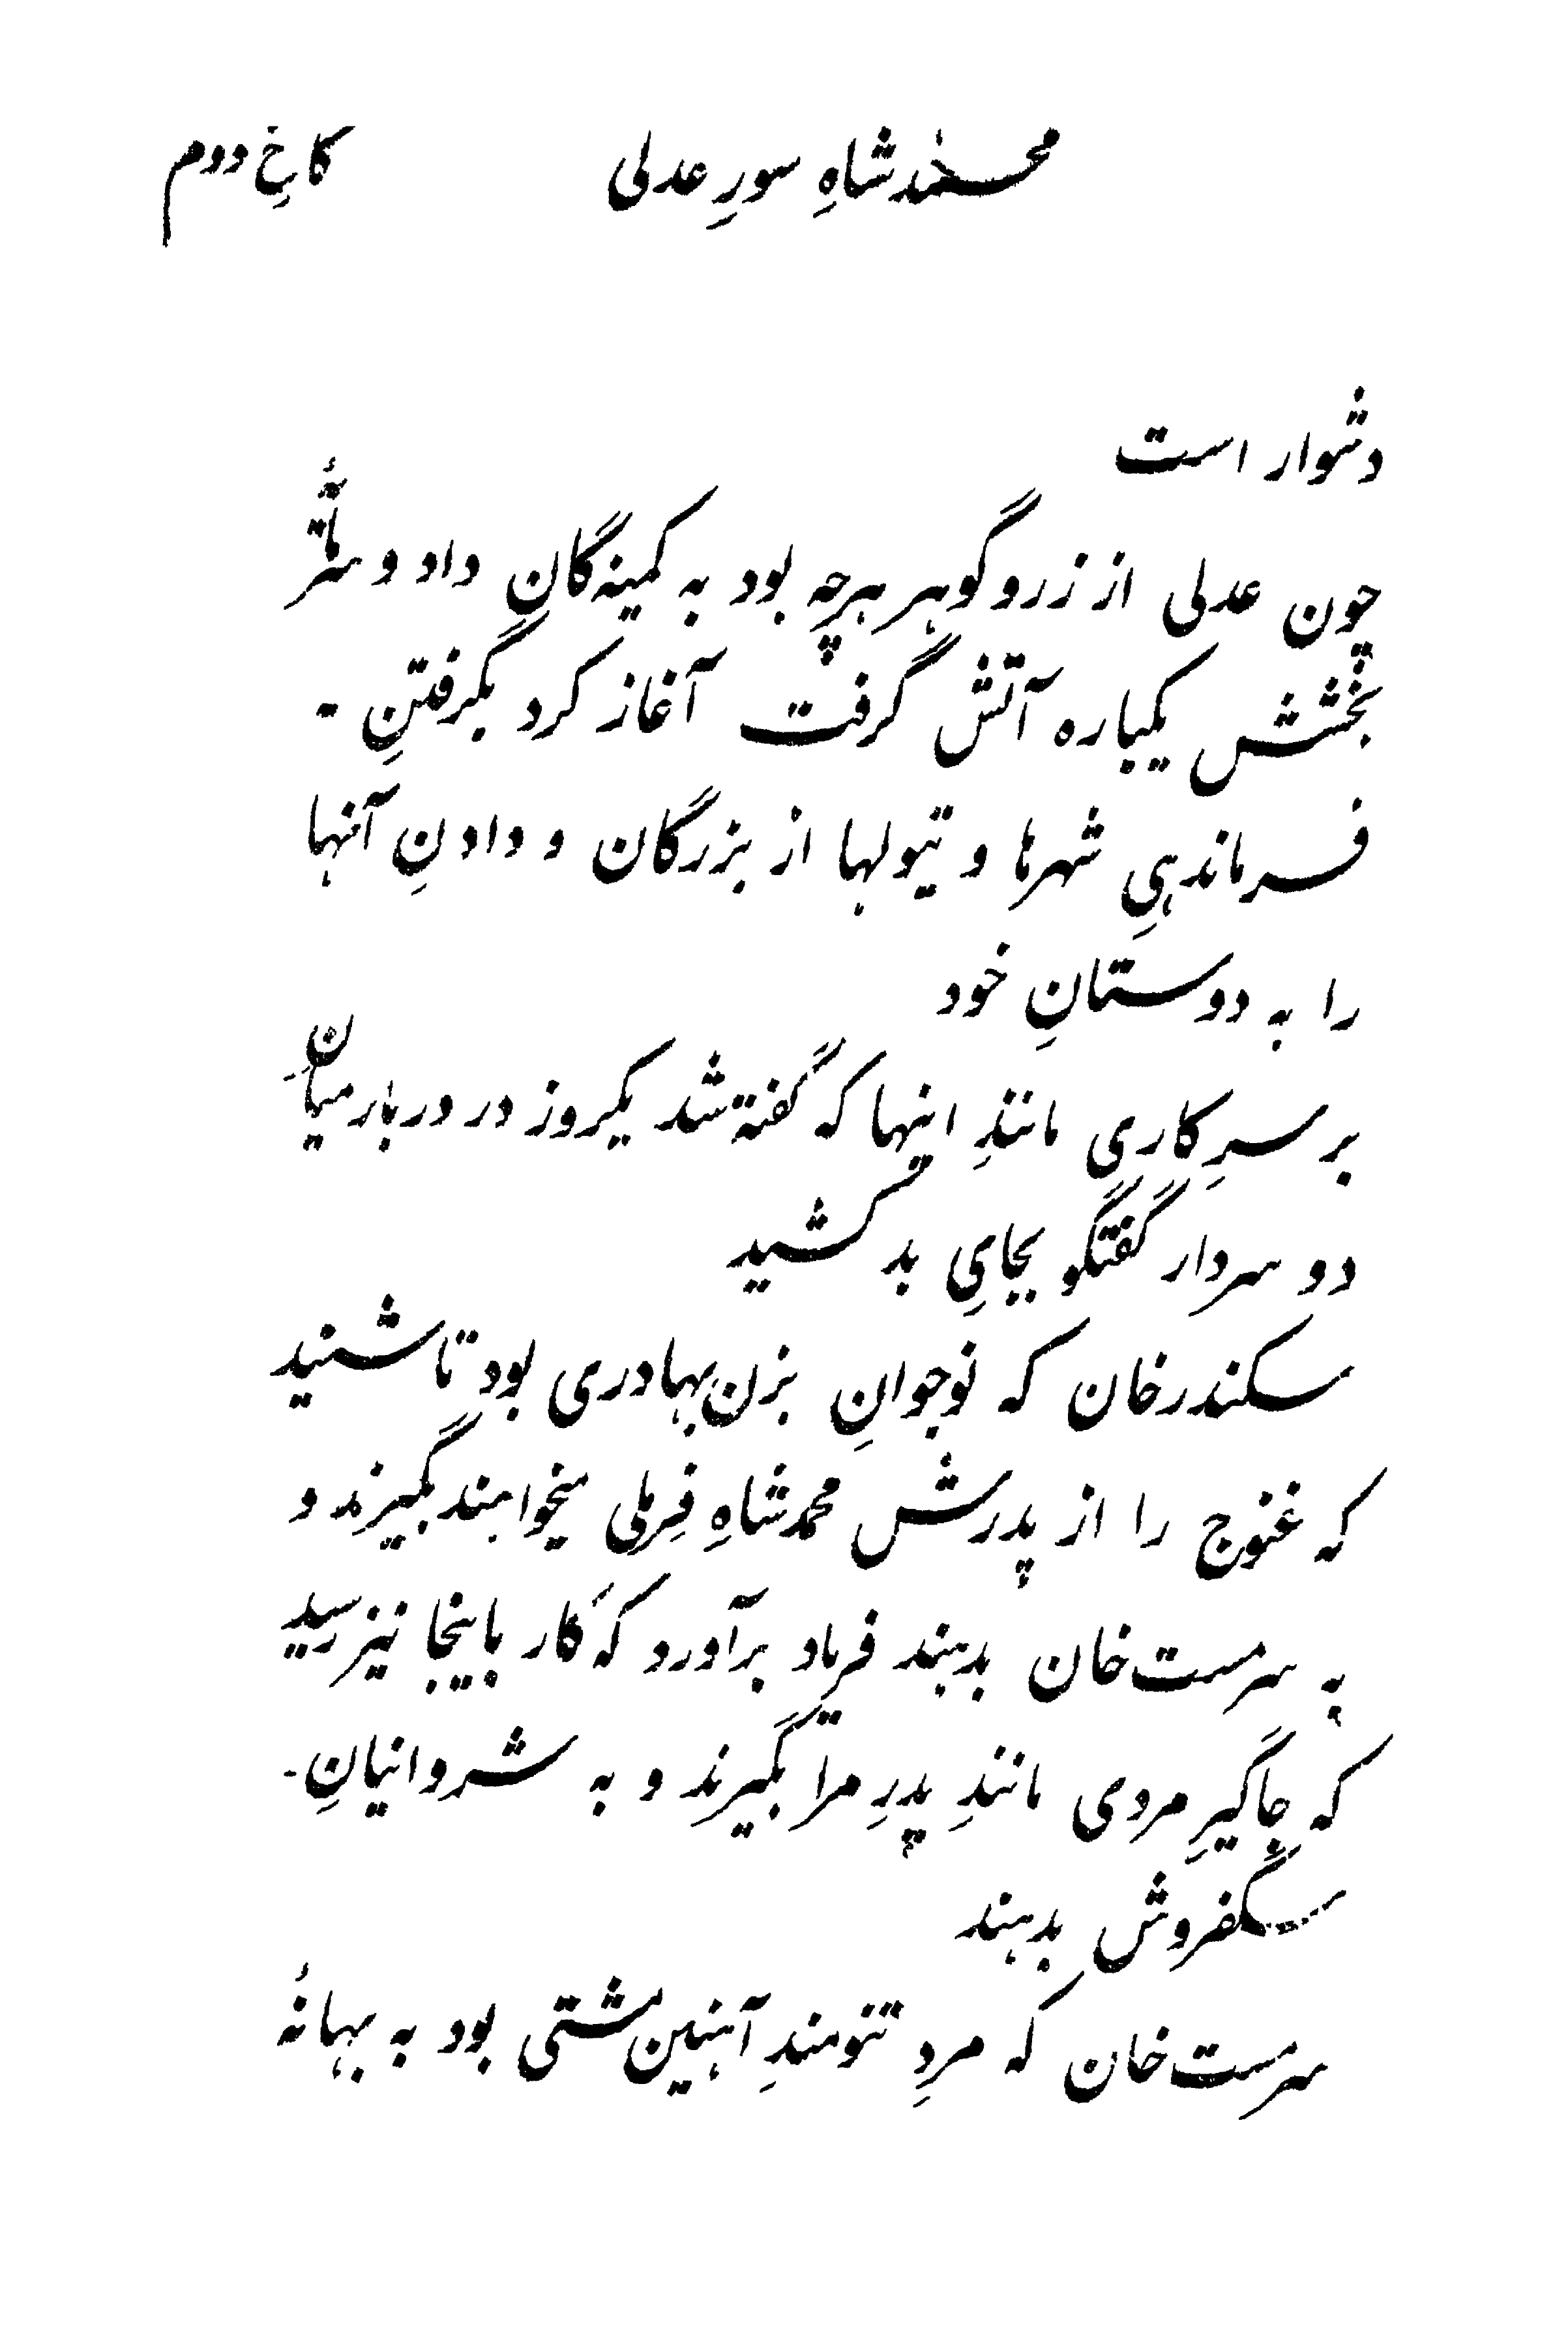 محمدشاهِ سورِ عدلی کاخِ دوم
دشوار است
چون عدلی از زر و گوهر هرچه بود به کمینه‌گانِ داد و سرمایهٔ
بخشش یکباره آتش گرفت آغاز کرد بگرفتنِ -
فرماندهیِ شهرها و تیولها از بزرگان و دادنِ آنها
را به دوستانِ خود
بر سرِ کاریِ مانندِ اینها که گفته شد یکروز در دربار میانِ
دو سردار گفتگو بجایِ بد کشید
سکندرخان که نوجوانِ بزن‌بهادری بود تا شنید
که غنوج را از پدرش محمدشاهِ فِرملی میخواهند بگیرند و
به سرمست‌خان بدهند فریاد برآورد که کار باینجا نیز رسید
که جاگیرِ مردی مانندِ پدرِ مرا بگیرند و به شروانیانِ -
سگفروش بدهند
سرمست‌خان که مردِ تنومندِ آهنین‌مشتی بود به بهانهٔ